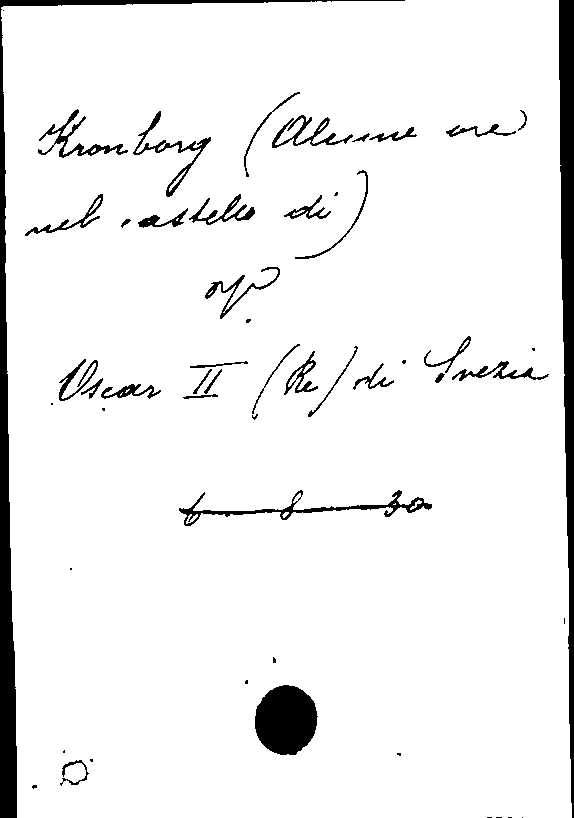 Kronborg (Alcune ore
nel castello di)
op.
Oscar II (Re) di Svezia
6 8 30